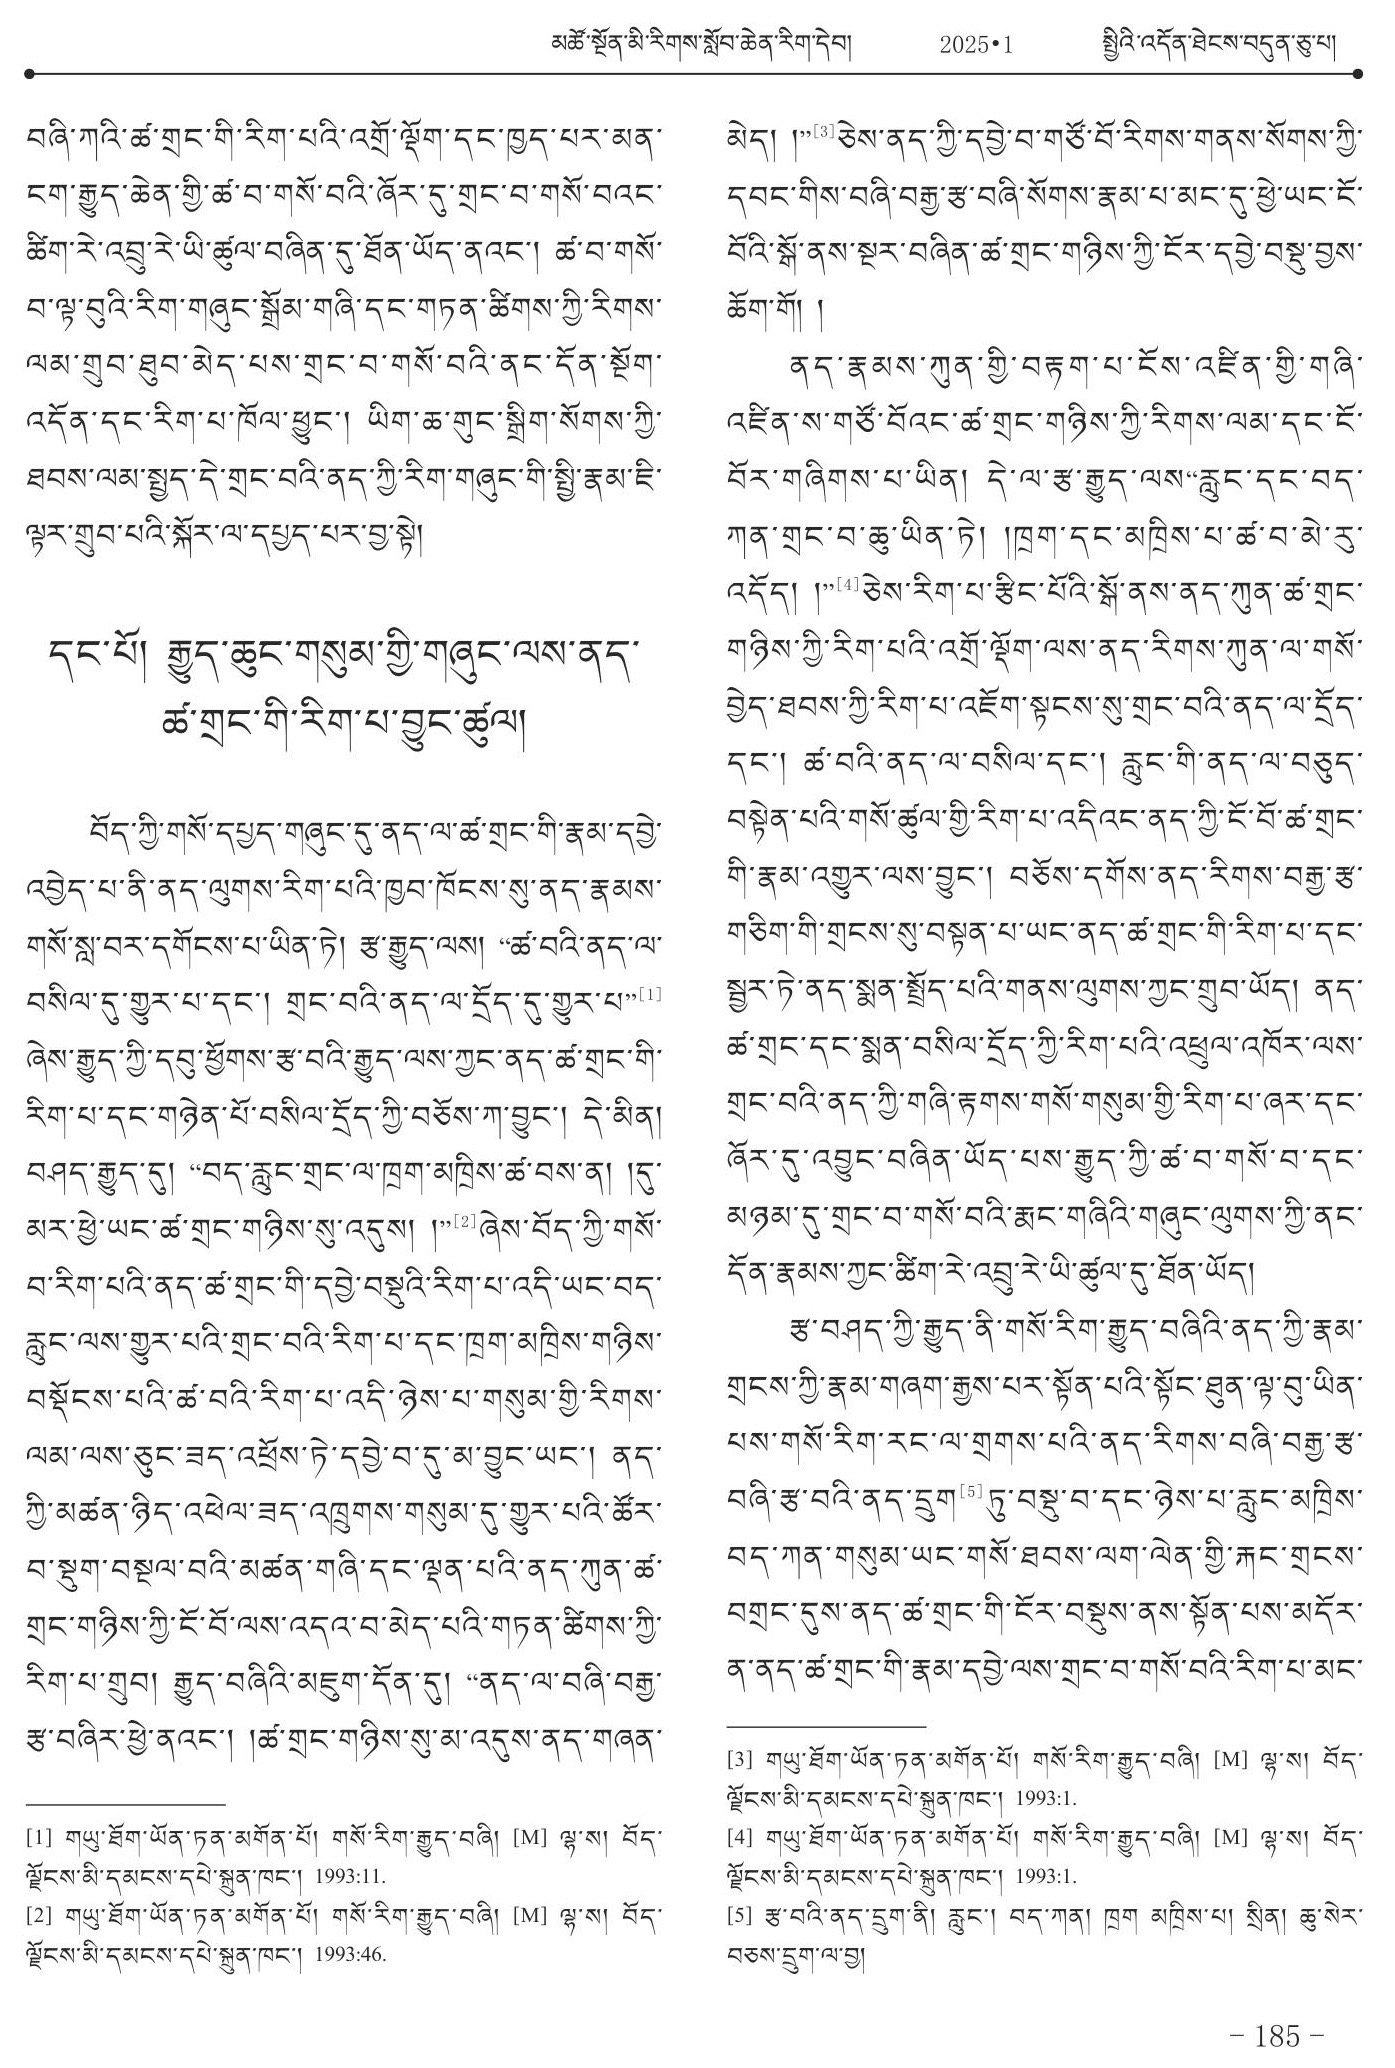 མཚོ་སྔོན་མི་རིགས་སློབ་ཆེན་རིག་དེབ། 2025•1 སྤྱིའི་འདོན་ཐེངས་བདུན་ཅུ་པ།
བཞི་ཀའི་ཚ་གྲང་གི་རིག་པའི་འགྲོ་ལྡོག་དང་ཁྱད་པར་མན་
ངག་རྒྱུད་ཆེན་གྱི་ཚ་བ་གསོ་བའི་ཞོར་དུ་གྲང་བ་གསོ་བའང་
ཚིག་རེ་འབྲུ་རེ་ཡི་ཚུལ་བཞིན་དུ་ཐོན་ཡོད་ནའང་། ཚ་བ་གསོ་
བ་ལྟ་བུའི་རིག་གཞུང་སྒྲོམ་གཞི་དང་གཏན་ཚིགས་ཀྱི་རིགས་
ལམ་གྲུབ་ཐུབ་མེད་པས་གྲང་བ་གསོ་བའི་ནང་དོན་སྔོག་
འདོན་དང་རིག་པ་ཁོལ་ཕྱུང་། ཡིག་ཆ་གུང་སྒྲིག་སོགས་ཀྱི་
ཐབས་ལམ་སྤྱད་དེ་གྲང་བའི་ནད་ཀྱི་རིག་གཞུང་གི་སྤྱི་རྣམ་ཇི་
ལྟར་གྲུབ་པའི་སྐོར་ལ་དཔྱད་པར་བྱ་སྟེ།
དང་པོ། རྒྱུད་ཆུང་གསུམ་གྱི་གཞུང་ལས་ནད་
ཚ་གྲང་གི་རིག་པ་བྱུང་ཚུལ།
བོད་ཀྱི་གསོ་དཔྱད་གཞུང་དུ་ནད་ལ་ཚ་གྲང་གི་རྣམ་དབྱེ་
འབྱེད་པ་ནི་ནད་ལུགས་རིག་པའི་ཁྱབ་ཁོངས་སུ་ནད་རྣམས་
གསོ་སླ་བར་དགོངས་པ་ཡིན་ཏེ། རྩ་རྒྱུད་ལས། “ཚ་བའི་ནད་ལ་
བསིལ་དུ་གྱུར་པ་དང་། གྲང་བའི་ནད་ལ་དྲོད་དུ་གྱུར་པ”[1]
ཞེས་རྒྱུད་ཀྱི་དབུ་ཕྱོགས་རྩ་བའི་རྒྱུད་ལས་ཀྱང་ནད་ཚ་གྲང་གི་
རིག་པ་དང་གཉེན་པོ་བསིལ་དྲོད་ཀྱི་བཅོས་ཀ་བྱུང་། དེ་མིན།
བཤད་རྒྱུད་དུ། “བད་རླུང་གྲང་ལ་ཁྲག་མཁྲིས་ཚ་བས་ན། །དུ་
མར་ཕྱེ་ཡང་ཚ་གྲང་གཉིས་སུ་འདུས། །”[2]ཞེས་བོད་ཀྱི་གསོ་
བ་རིག་པའི་ནད་ཚ་གྲང་གི་དབྱེ་བསྡུའི་རིག་པ་འདི་ཡང་བད་
རླུང་ལས་གྱུར་པའི་གྲང་བའི་རིག་པ་དང་ཁྲག་མཁྲིས་གཉིས་
བསྡོངས་པའི་ཚ་བའི་རིག་པ་འདི་ཉེས་པ་གསུམ་གྱི་རིགས་
ལམ་ལས་ཅུང་ཟད་འཕྲོས་ཏེ་དབྱེ་བ་དུ་མ་བྱུང་ཡང་། ནད་
ཀྱི་མཚན་ཉིད་འཕེལ་ཟད་འཁྲུགས་གསུམ་དུ་གྱུར་པའི་ཚོར་
བ་སྡུག་བསྔལ་བའི་མཚན་གཞི་དང་ལྡན་པའི་ནད་ཀུན་ཚ་
གྲང་གཉིས་ཀྱི་ངོ་བོ་ལས་འདའ་བ་མེད་པའི་གཏན་ཚིགས་ཀྱི་
རིག་པ་གྲུབ། རྒྱུད་བཞིའི་མཇུག་དོན་དུ། “ནད་ལ་བཞི་བརྒྱ་
རྩ་བཞིར་ཕྱེ་ནའང་། །ཚ་གྲང་གཉིས་སུ་མ་འདུས་ནད་གཞན་
[1] གཡུ་ཐོག་ཡོན་ཏན་མགོན་པོ། གསོ་རིག་རྒྱུད་བཞི། [M] ལྷ་ས། བོད་
ལྗོངས་མི་དམངས་དཔེ་སྐྲུན་ཁང་། 1993:11.
[2] གཡུ་ཐོག་ཡོན་ཏན་མགོན་པོ། གསོ་རིག་རྒྱུད་བཞི། [M] ལྷ་ས། བོད་
ལྗོངས་མི་དམངས་དཔེ་སྐྲུན་ཁང་། 1993:46.
མེད། །”[3]ཅེས་ནད་ཀྱི་དབྱེ་བ་གཙོ་བོ་རིགས་གནས་སོགས་ཀྱི་
དབང་གིས་བཞི་བརྒྱ་རྩ་བཞི་སོགས་རྣམ་པ་མང་དུ་ཕྱེ་ཡང་ངོ་
བོའི་སྒོ་ནས་སྔར་བཞིན་ཚ་གྲང་གཉིས་ཀྱི་ངོར་དབྱེ་བསྡུ་བྱས་
ཆོག་གོ། །
ནད་རྣམས་ཀུན་གྱི་བརྟག་པ་ངོས་འཛིན་གྱི་གཞི་
འཛིན་ས་གཙོ་བོའང་ཚ་གྲང་གཉིས་ཀྱི་རིགས་ལམ་དང་ངོ་
བོར་གཞིགས་པ་ཡིན། དེ་ལ་རྩ་རྒྱུད་ལས“རླུང་དང་བད་
ཀན་གྲང་བ་ཆུ་ཡིན་ཏེ། །ཁྲག་དང་མཁྲིས་པ་ཚ་བ་མེ་རུ་
འདོད། །”[4]ཅེས་རིག་པ་རྩིང་པོའི་སྒོ་ནས་ནད་ཀུན་ཚ་གྲང་
གཉིས་ཀྱི་རིག་པའི་འགྲོ་ལྡོག་ལས་ནད་རིགས་ཀུན་ལ་གསོ་
བྱེད་ཐབས་ཀྱི་རིག་པ་འཇོག་སྟངས་སུ་གྲང་བའི་ནད་ལ་དྲོད་
དང་། ཚ་བའི་ནད་ལ་བསིལ་དང་། རླུང་གི་ནད་ལ་བཅུད་
བསྟེན་པའི་གསོ་ཚུལ་གྱི་རིག་པ་འདིའང་ནད་ཀྱི་ངོ་བོ་ཚ་གྲང་
གི་རྣམ་འགྱུར་ལས་བྱུང་། བཅོས་དགོས་ནད་རིགས་བརྒྱ་རྩ་
གཅིག་གི་གྲངས་སུ་བསྟན་པ་ཡང་ནད་ཚ་གྲང་གི་རིག་པ་དང་
སྦྱར་ཏེ་ནད་སྨན་སྤྲོད་པའི་གནས་ལུགས་ཀྱང་གྲུབ་ཡོད། ནད་
ཚ་གྲང་དང་སྨན་བསིལ་དྲོད་ཀྱི་རིག་པའི་འཕྲུལ་འཁོར་ལས་
གྲང་བའི་ནད་ཀྱི་གཞི་རྟགས་གསོ་གསུམ་གྱི་རིག་པ་ཞར་དང་
ཞོར་དུ་འབྱུང་བཞིན་ཡོད་པས་རྒྱུད་ཀྱི་ཚ་བ་གསོ་བ་དང་
མཉམ་དུ་གྲང་བ་གསོ་བའི་རྨང་གཞིའི་གཞུང་ལུགས་ཀྱི་ནང་
དོན་རྣམས་ཀྱང་ཚིག་རེ་འབྲུ་རེ་ཡི་ཚུལ་དུ་ཐོན་ཡོད།
རྩ་བཤད་ཀྱི་རྒྱུད་ནི་གསོ་རིག་རྒྱུད་བཞིའི་ནད་ཀྱི་རྣམ་
གྲངས་ཀྱི་རྣམ་གཞག་རྒྱས་པར་སྟོན་པའི་སྟོང་ཐུན་ལྟ་བུ་ཡིན་
པས་གསོ་རིག་རང་ལ་གྲགས་པའི་ནད་རིགས་བཞི་བརྒྱ་རྩ་
བཞི་རྩ་བའི་ནད་དྲུག[5]ཏུ་བསྡུ་བ་དང་ཉེས་པ་རླུང་མཁྲིས་
བད་ཀན་གསུམ་ཡང་གསོ་ཐབས་ལག་ལེན་གྱི་རྐང་གྲངས་
བགྲང་དུས་ནད་ཚ་གྲང་གི་ངོར་བསྡུས་ནས་སྟོན་པས་མདོར་
ན་ནད་ཚ་གྲང་གི་རྣམ་དབྱེ་ལས་གྲང་བ་གསོ་བའི་རིག་པ་མང་
[3] གཡུ་ཐོག་ཡོན་ཏན་མགོན་པོ། གསོ་རིག་རྒྱུད་བཞི། [M] ལྷ་ས། བོད་
ལྗོངས་མི་དམངས་དཔེ་སྐྲུན་ཁང་། 1993:1.
[4] གཡུ་ཐོག་ཡོན་ཏན་མགོན་པོ། གསོ་རིག་རྒྱུད་བཞི། [M] ལྷ་ས། བོད་
ལྗོངས་མི་དམངས་དཔེ་སྐྲུན་ཁང་། 1993:1.
[5] རྩ་བའི་ནད་དྲུག་ནི། རླུང་། བད་ཀན། ཁྲག མཁྲིས་པ། སྲིན། ཆུ་སེར་
བཅས་དྲུག་ལ་བྱ།
– 185 –